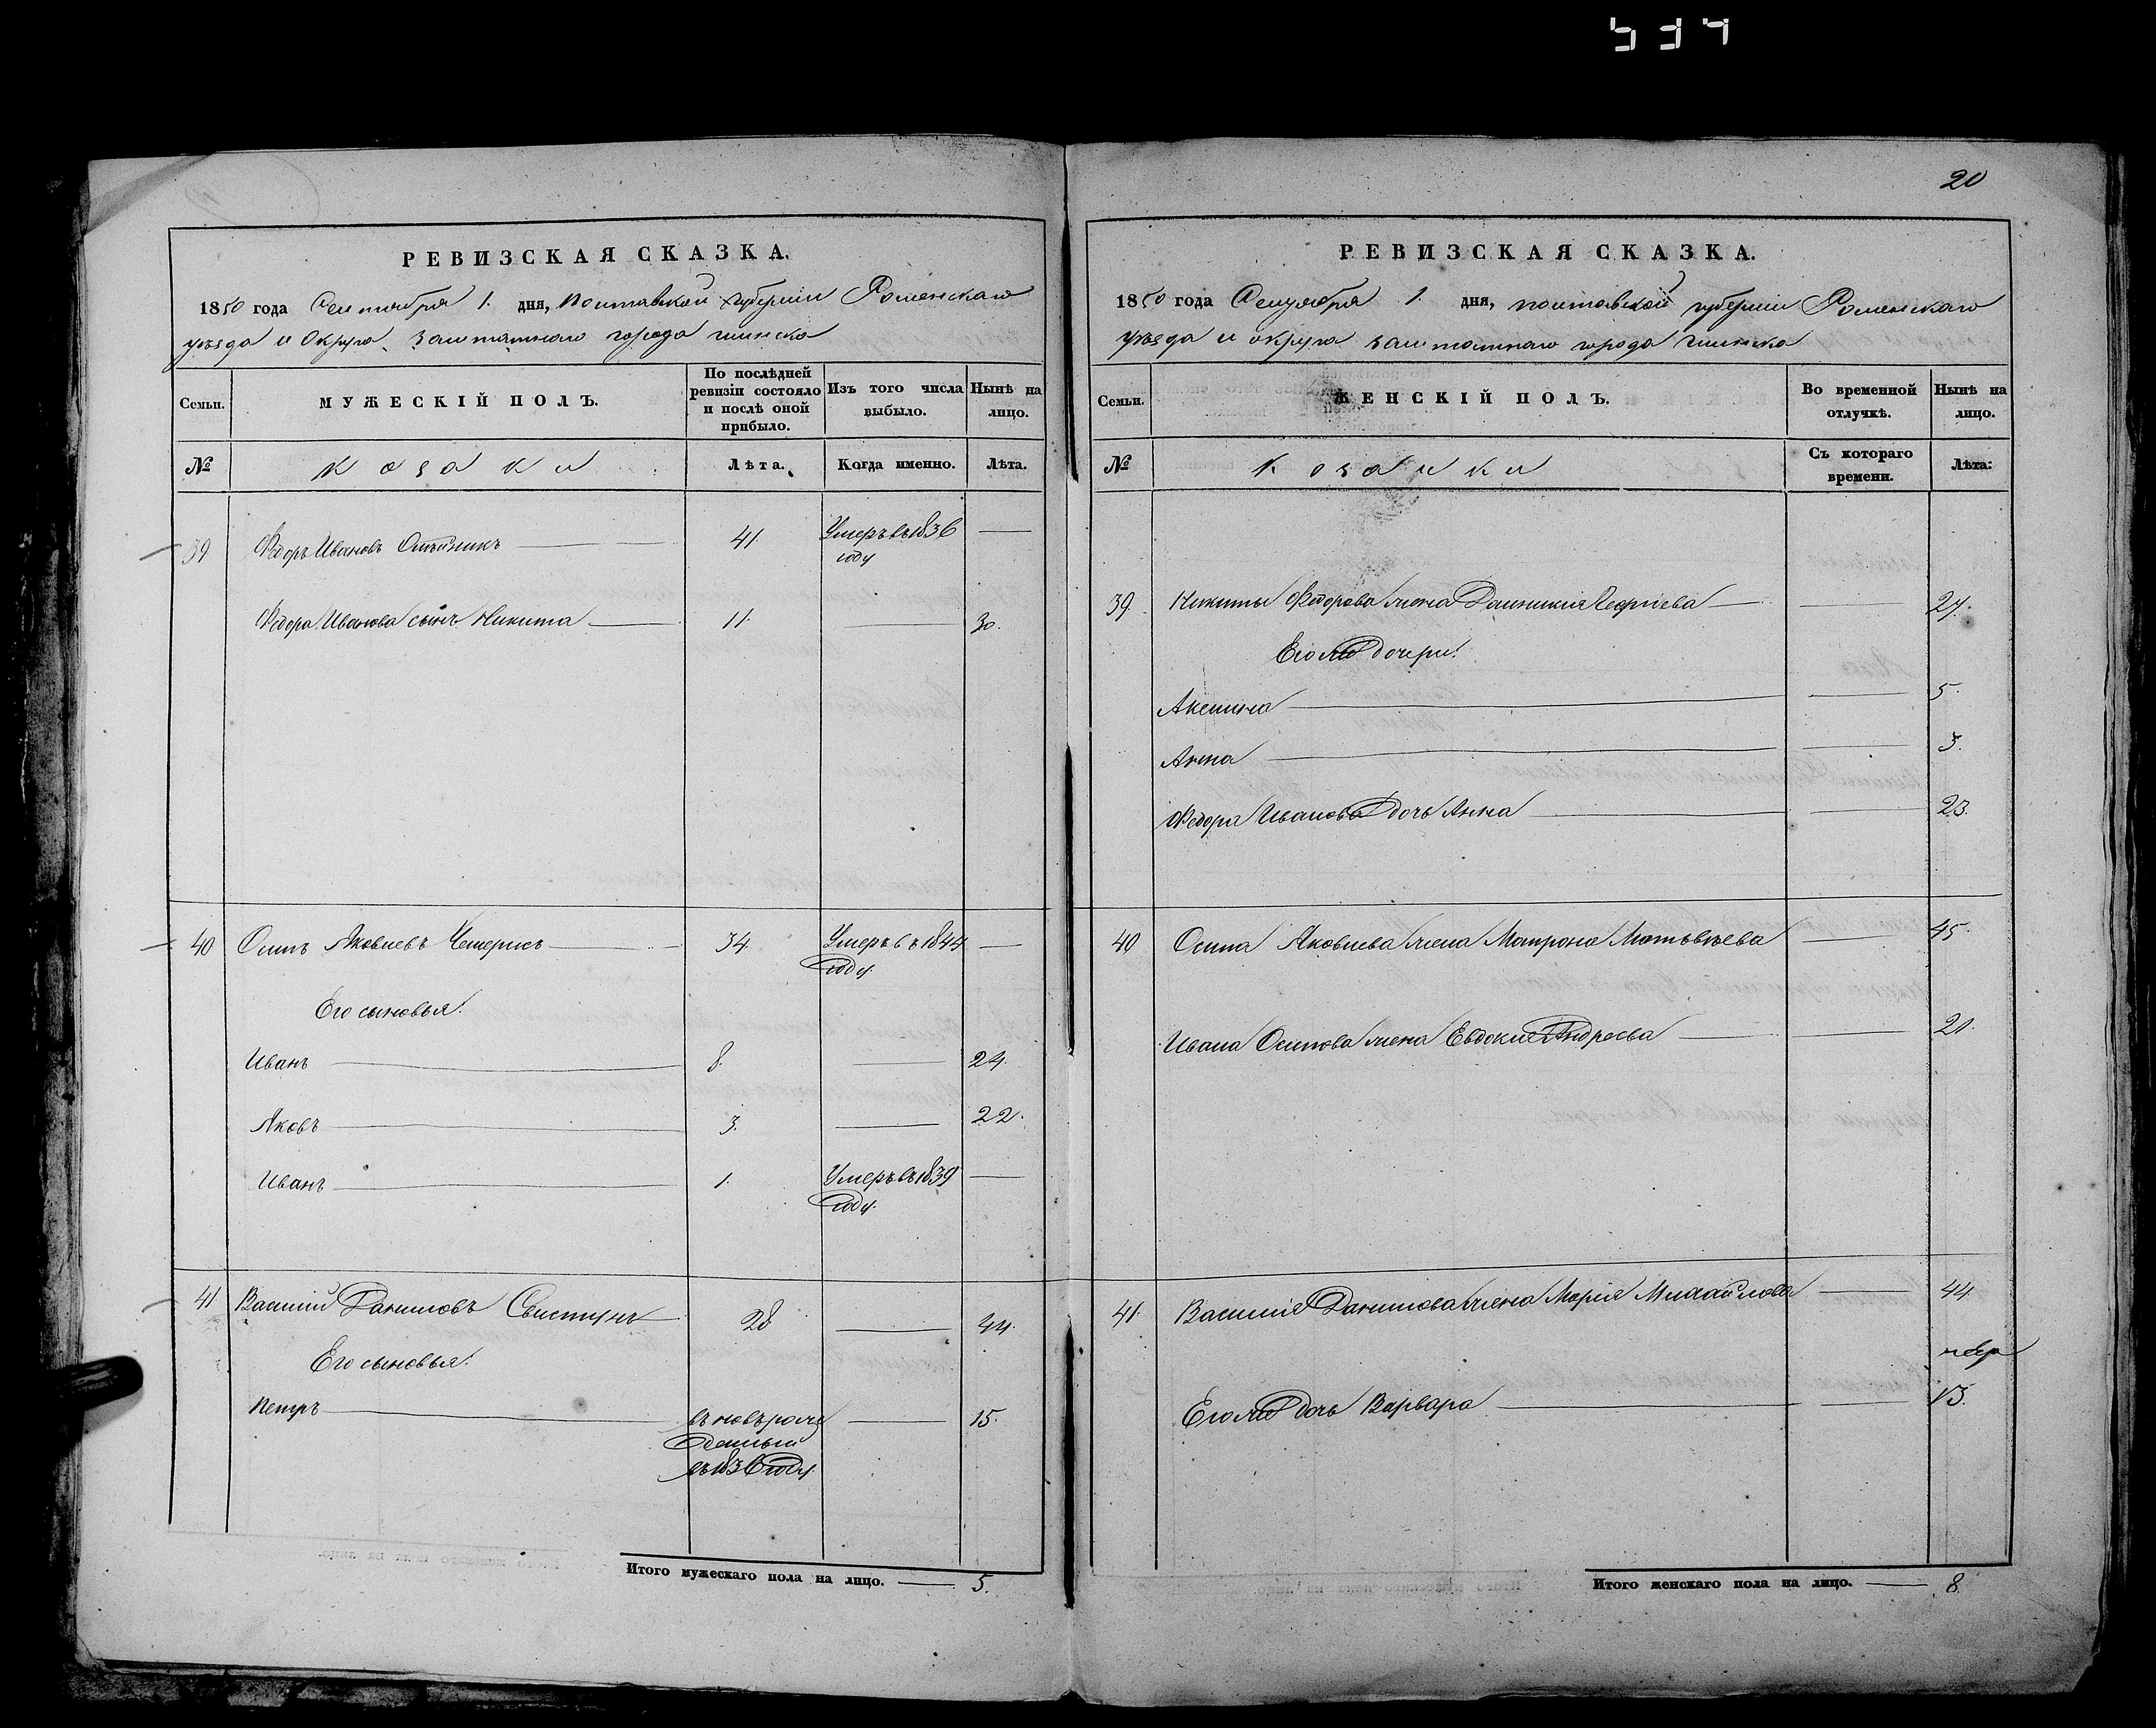 534
РЕВИЗСКАЯ СКАЗКА.
1850 года Сентября 1. дня, Полтавской губернии Роменскаго
уѣзда и Округа, заштатнаго города Глинска
Семьи. МУЖЕСКІЙ ПОЛЪ. По послѣдней ревизіи состояло и послѣ оной прибыло. Изъ того числа выбыло. Нынѣ на лицо.
№ Козаки Лѣта. Когда именно. Лѣта.
39 Федоръ Ивановъ 41. Умеръ въ 1836 году —
Федора Иванова сынъ Никита — 11. — 30.
40 Осипъ Яковлевъ Чемерисъ — 34 Умеръ въ 1844 году. —
Его сыновья:
Иванъ — 8. — 24.
Яковъ — 3. — 22.
Иванъ — 1. Умеръ въ 1839 году. —
41 Василий Даниловъ Свистунъ — 28 — 44.
Его сыновья:
Петръ — въ новь рож — 15.
денный
въ 183 году.
Итого мужескаго пола на лицо. — 5.
20
РЕВИЗСКАЯ СКАЗКА.
1850 года Сентября 1. дня, Полтавской губернии Роменскаго
уѣзда и округа заштатнаго города Глинска
Семьи. ЖЕНСКІЙ ПОЛЪ. Во временной отлучкѣ. Нынѣ на лицо.
№ Козачки Съ котораго времени. Лѣта:
39. Никиты Федорова жена Домникия Георгіева — — 27.
Его же дочери:
Аксинья — — 5.
Анна — — 3.
Федора Иванова дочь Анна — — 23.
40 Осипа Яковлева жена Матрона Матвѣева — 45.
Ивана Осипова жена Евдокия Андреева — — 21.
41. Василия Данилова жена Мария Михайлова — 44
Его же дочь Варвара — — 13.
Итого женскаго пола на лицо. — 8.